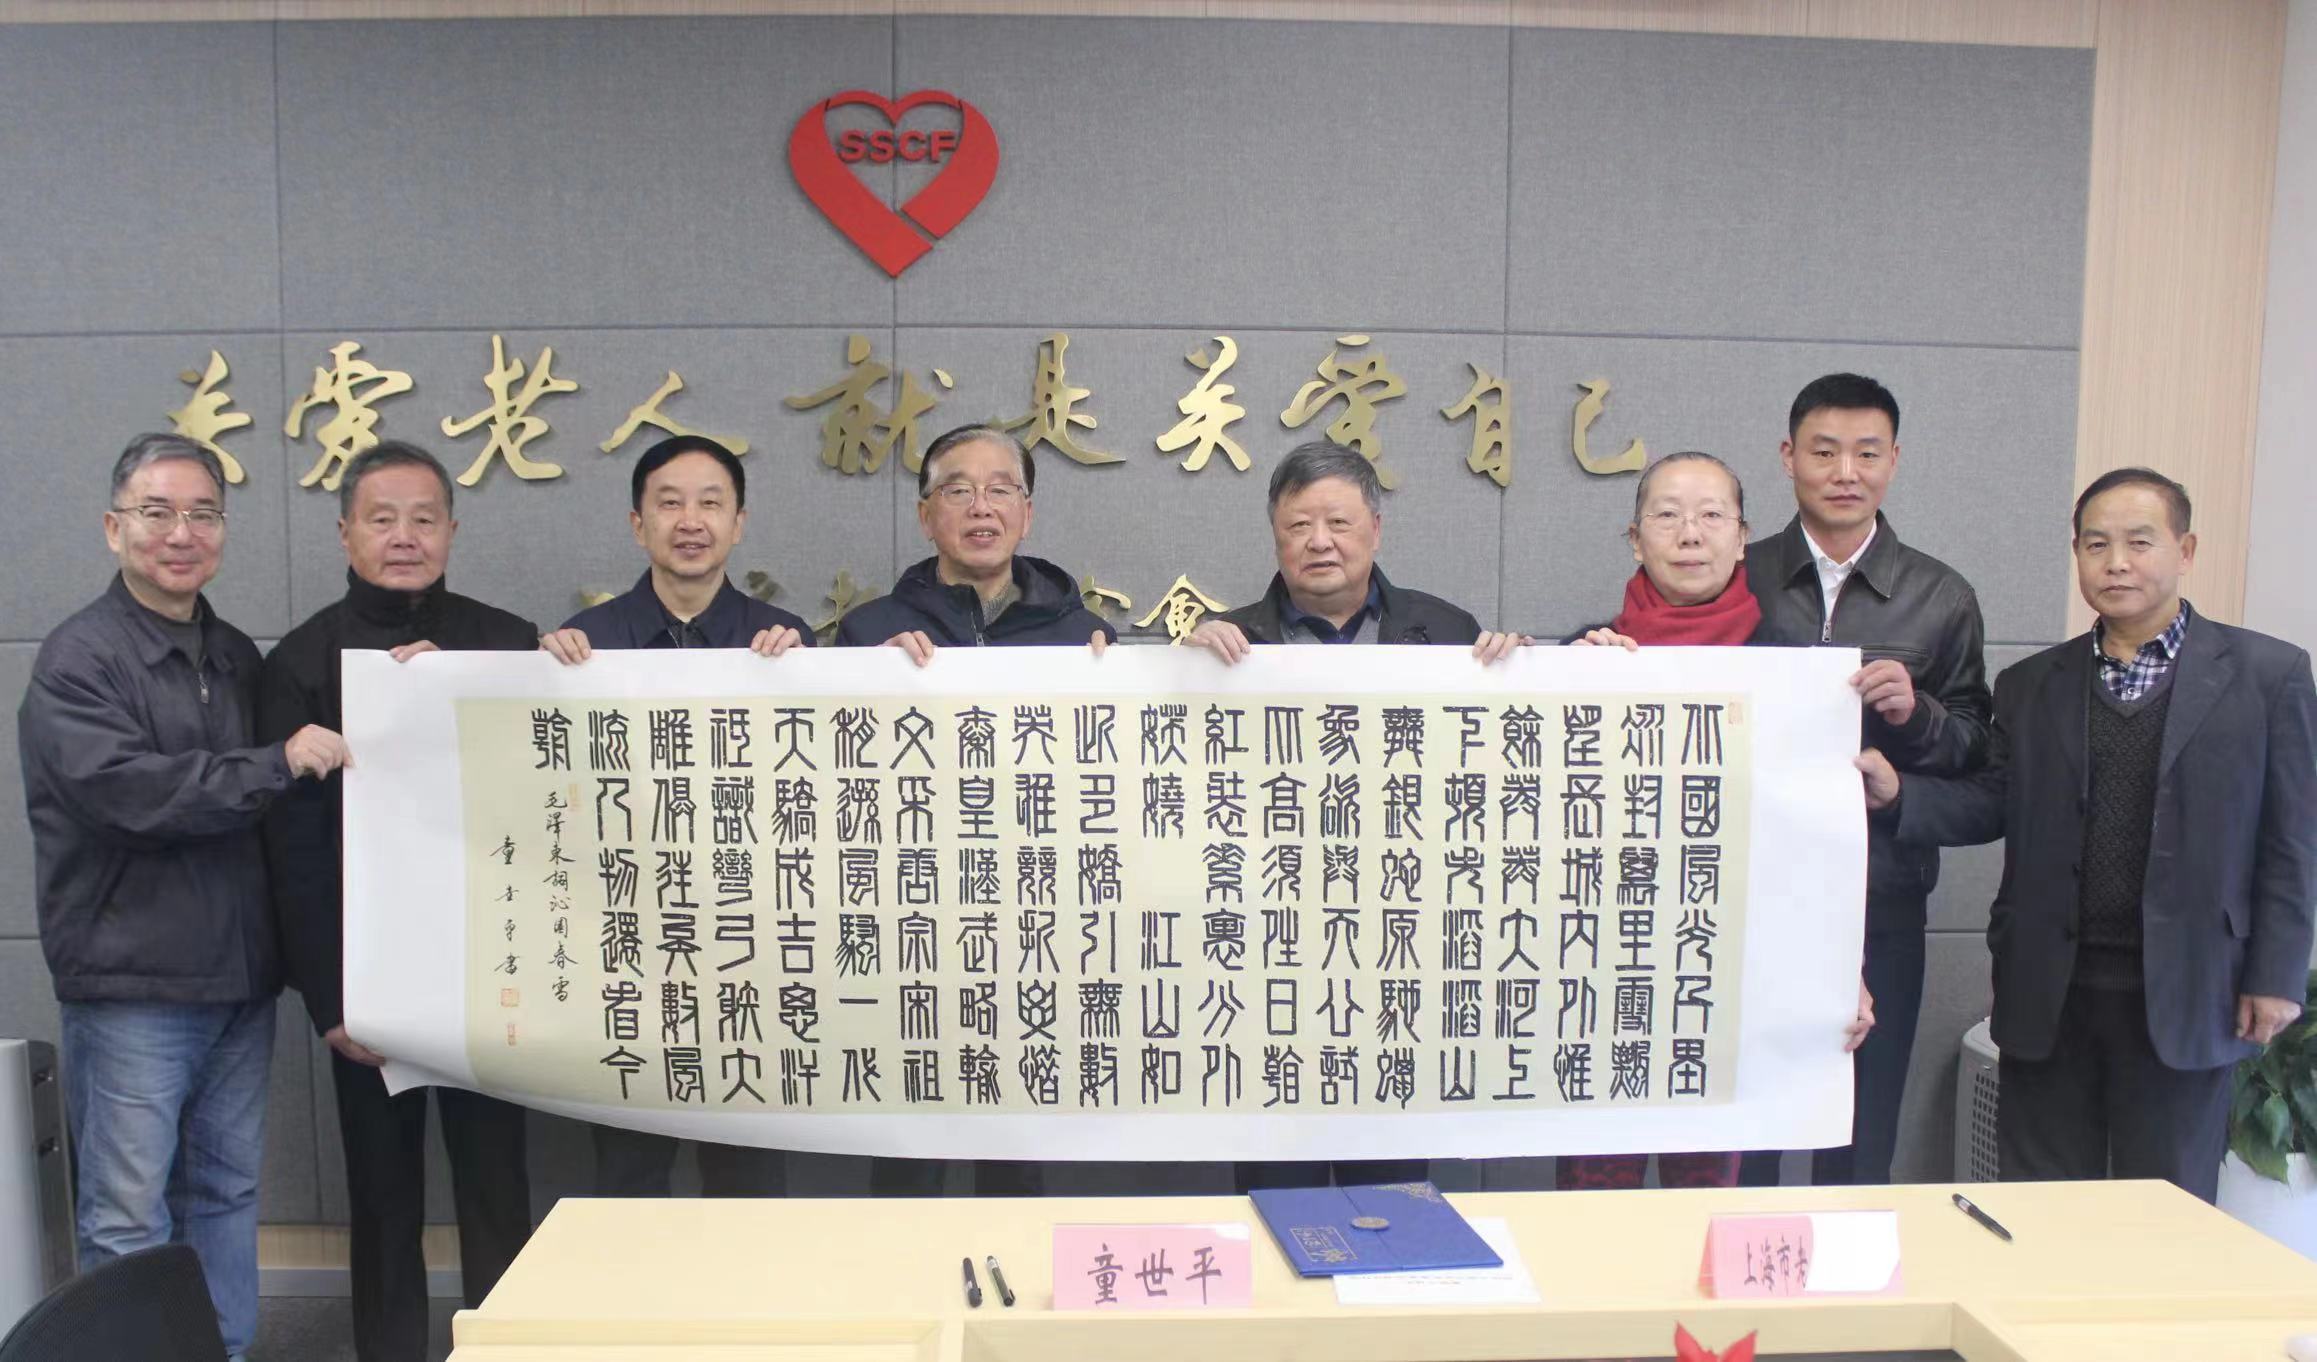 SSCF
关愛老人 就是关愛自己
會
北國風光千里
冰封萬里雪飄
望長城內外惟
餘莽莽大河上
下頓失滔滔山
舞銀蛇原馳蠟
象欲與天公試
比高須晴日看
紅裝素裹分外
妖嬈 江山如
此多嬌引無數
英雄競折腰惜
秦皇漢武略輸
文采唐宗宋祖
稍遜風騷一代
天驕成吉思汗
祗識彎弓射大
雕俱往矣數風
流人物還看今
朝
毛澤東詞沁園春雪
童世平書
童世平
上海市老